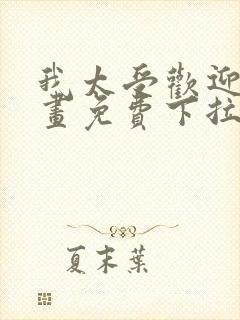 我太受歡迎
畫免費下拉
夏末葉